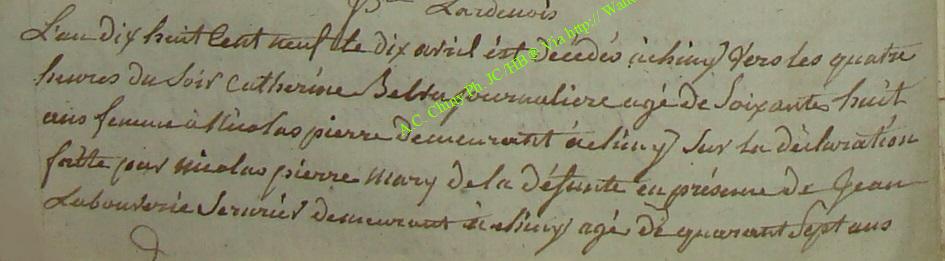 Lardenois
L'an dix huit Cent neuf le dix avril est décédés à chiny vers les quatre
heures du Soir Catherine journaliere agé de Soixante huit
ans femme à Nicolas pierre demeurant à chiny Sur la déclaration
faitte par nicolas pierre mary de la defunte en présence de Jean
Labouverie Serurier demeurant à chiny agé de quarant Sept ans
A.C. Chiny Ph. JC /HB@ Via http:// Wall